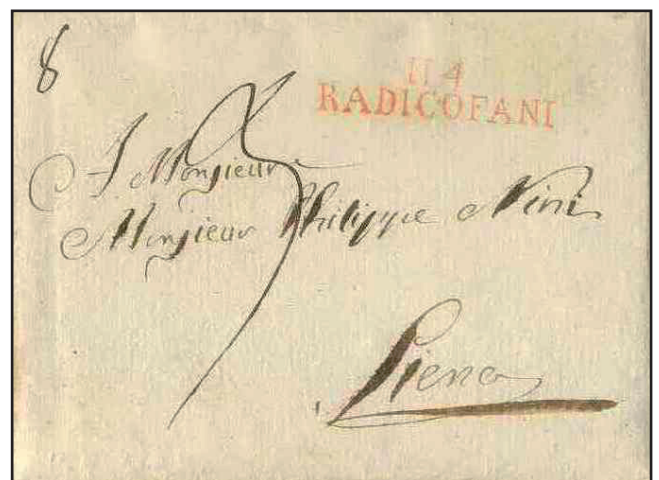 8
114
RADICOFANI
A Monsieur
Monsieur Philippe Nini
Siena